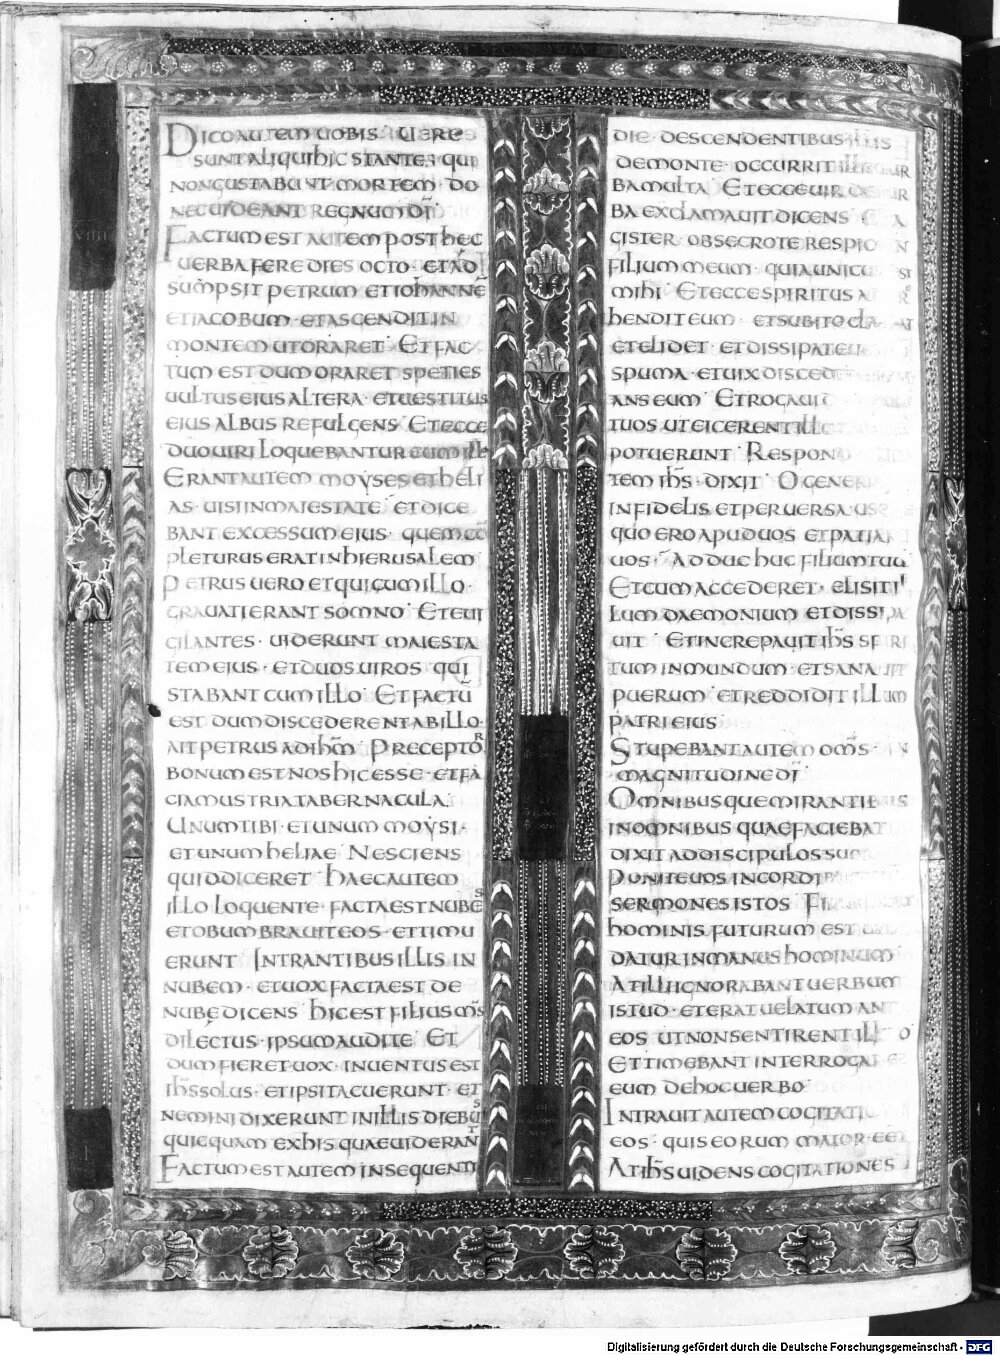 SECUNDUM
DICO AUTEM UOBIS· UERE
SUNT ALIQUI HIC STANTES QUI
NON GUSTABUNT MORTEM· DO
NEC UIDEANT REGNUM DI·
FACTUM EST AUTEM POST HEC
UERBA FERE DIES OCTO· ET
SUMPSIT PETRUM ET IOHANNĒ
ET IACOBUM· ET ASCENDIT IN
MONTEM UT ORARET· ET FAC
TUM EST DUM ORARET SPETIES
UULTUS EIUS ALTERA· ET UESTITUS
EIUS ALBUS REFULGENS· ET ECCE
DUO UIRI LOQUEBANTUR CUM ILLO
ERANT AUTEM MOYSES ET HELI
AS· UISI IN MAIESTATE· ET DICE
BANT EXCESSUM EIUS· QUEM CŌ
PLETURUS ERAT IN HIERUSALEM
PETRUS UERO ET QUI CUM ILLO·
GRAUATI ERANT SOMNO· ET EUI
GILANTES· UIDERUNT MAIESTA
TEM EIUS· ET DUOS UIROS QUI
STABANT CUM ILLO· ET FACTŪ
EST DUM DISCEDERENT AB ILLO·
AIT PETRUS AD IHM̄· PRECEPTOR
BONUM EST NOS HIC ESSE· ET FA
CIAMUS TRIA TABERNACULA·
UNUM TIBI· ET UNUM MOYSI·
ET UNUM HELIAE· NESCIENS
QUID DICERET· HAEC AUTEM
ILLO LOQUENTE· FACTA EST NUBES
ET OBUMBRAUIT EOS· ET TIMU
ERUNT INTRANTIBUS ILLIS IN
NUBEM· ET UOX FACTA EST DE
NUBE DICENS· HIC EST FILIUS MS̄
DILECTUS· IPSUM AUDITE· ET
DUM FIERET UOX· INUENTUS EST
IHS̄ SOLUS· ET IPSI TACUERUNT· ET
NEMINI DIXERUNT IN ILLIS DIEBUS
QUICQUAM EX HIS QUAE UIDERANT
FACTUM EST AUTEM IN SEQUENTI
DIE· DESCENDENTIBUS ILLIS
DE MONTE· OCCURRIT ILLI TUR
BA MULTA· ET ECCE UIR
BA EXCLAMAUIT DICENS·
GISTER· OBSECRO TE RESPI
FILIUM MEUM· QUIA UNICU
MIHI· ET ECCE SPIRITUS
HENDIT EUM· ET SUBITO CLA
ET ELIDET· ET DISSIPAT EU
SPUMA· ET UIX DISCED
ANS EUM· ET ROGAUI
TUOS UT EICERENT ILL
POTUERUNT· RESPON
TEM IHS̄· DIXIT· O GENER
INFIDELIS ET PERUERSA· US
QUO ERO APUD UOS· ET PATIAR
UOS· ADDUC HUC FILIUM TUŪ
ET CUM ACCEDERET· ELISIT IL
LUM DAEMONIUM ET DISSIPA
UIT· ET INCREPAUIT IHS̄ SPIRI
TUM INMUNDUM· ET SANAUIT
PUERUM· ET REDDIDIT ILLUM
PATRI EIUS·
STUPEBANT AUTEM OMS̄· IN
MAGNITUDINE DI·
OMNIBUSQUE MIRANTIBUS
IN OMNIBUS QUAE FACIEBAT
DIXIT AD DISCIPULOS SUO
PONITE UOS IN CORDI
SERMONES ISTOS· FI
HOMINIS FUTURUM EST
DATUR IN MANUS HOMINUM·
AT ILLI IGNORABANT UERBUM
ISTUD· ET ERAT UELATUM AN
EOS· UT NON SENTIRENT ILL
ET TIMEBANT INTERROGA
EUM DE HOC UERBO·
INTRAUIT AUTEM COGITATI
EOS· QUIS EORUM MAIOR·
AT IHS̄ UIDENS· COGITATIONES
Digitalisierung gefördert durch die Deutsche Forschungsgemeinschaft - DFG